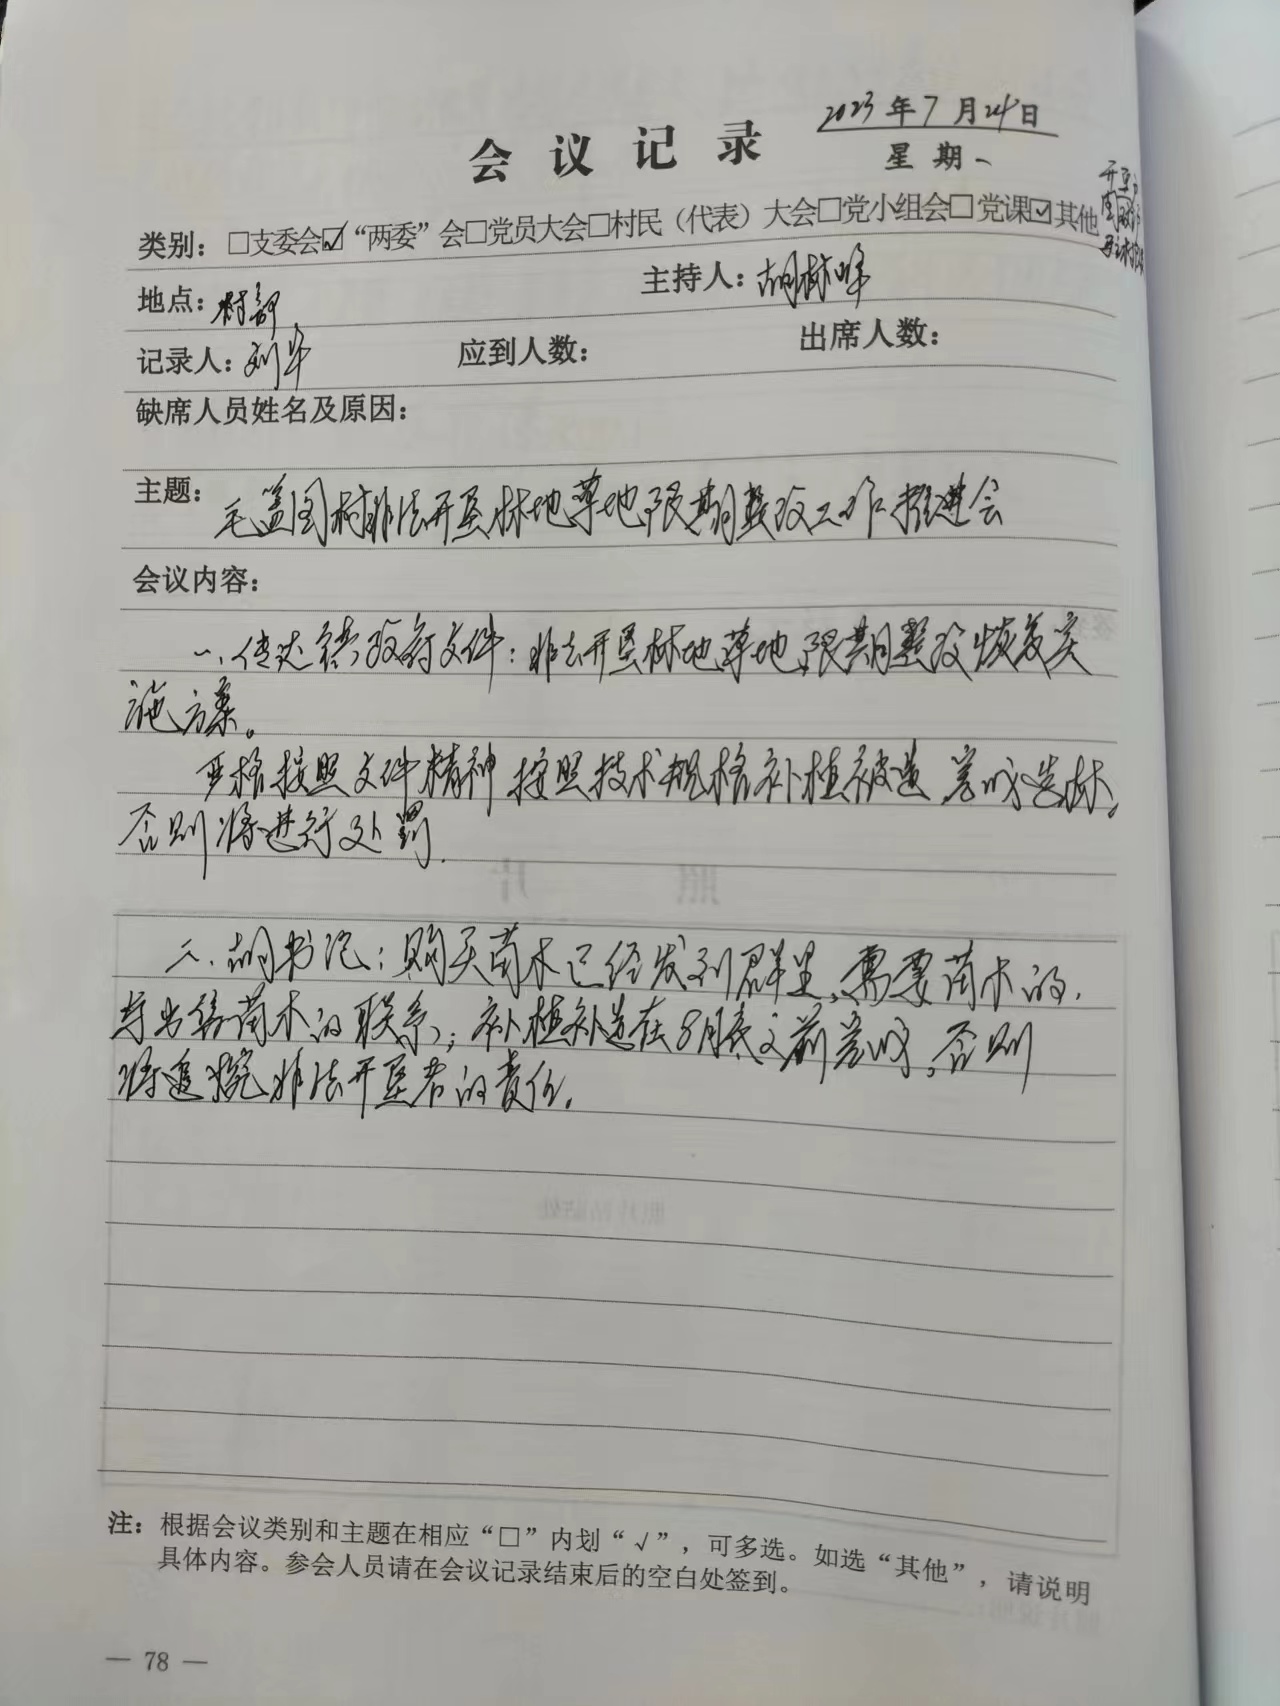 2023年7月24日
会议记录
星期一
类别：□支委会☑“两委”会□党员大会□村民（代表）大会□党小组会□党课☑其他
地点：村部
主持人：胡林峰
记录人：刘华
应到人数：
出席人数：
缺席人员姓名及原因：
主题：毛盖图村非法开垦林地草地限期整改工作推进会
会议内容：
一、传达镇政府文件：非法开垦林地草地限期整改恢复实
施方案。
严格按照文件精神按照技术规格补植被造，完成造林，
否则将进行处罚.
二、胡书记：购买苗木已经发到群里，需要苗木的，
与出售苗木的联系；补植补造在8月底之前完成，否则
将追究非法开垦者的责任。
注：根据会议类别和主题在相应“□”内划“√”，可多选。如选“其他”，请说明
具体内容。参会人员请在会议记录结束后的空白处签到。
— 78 —